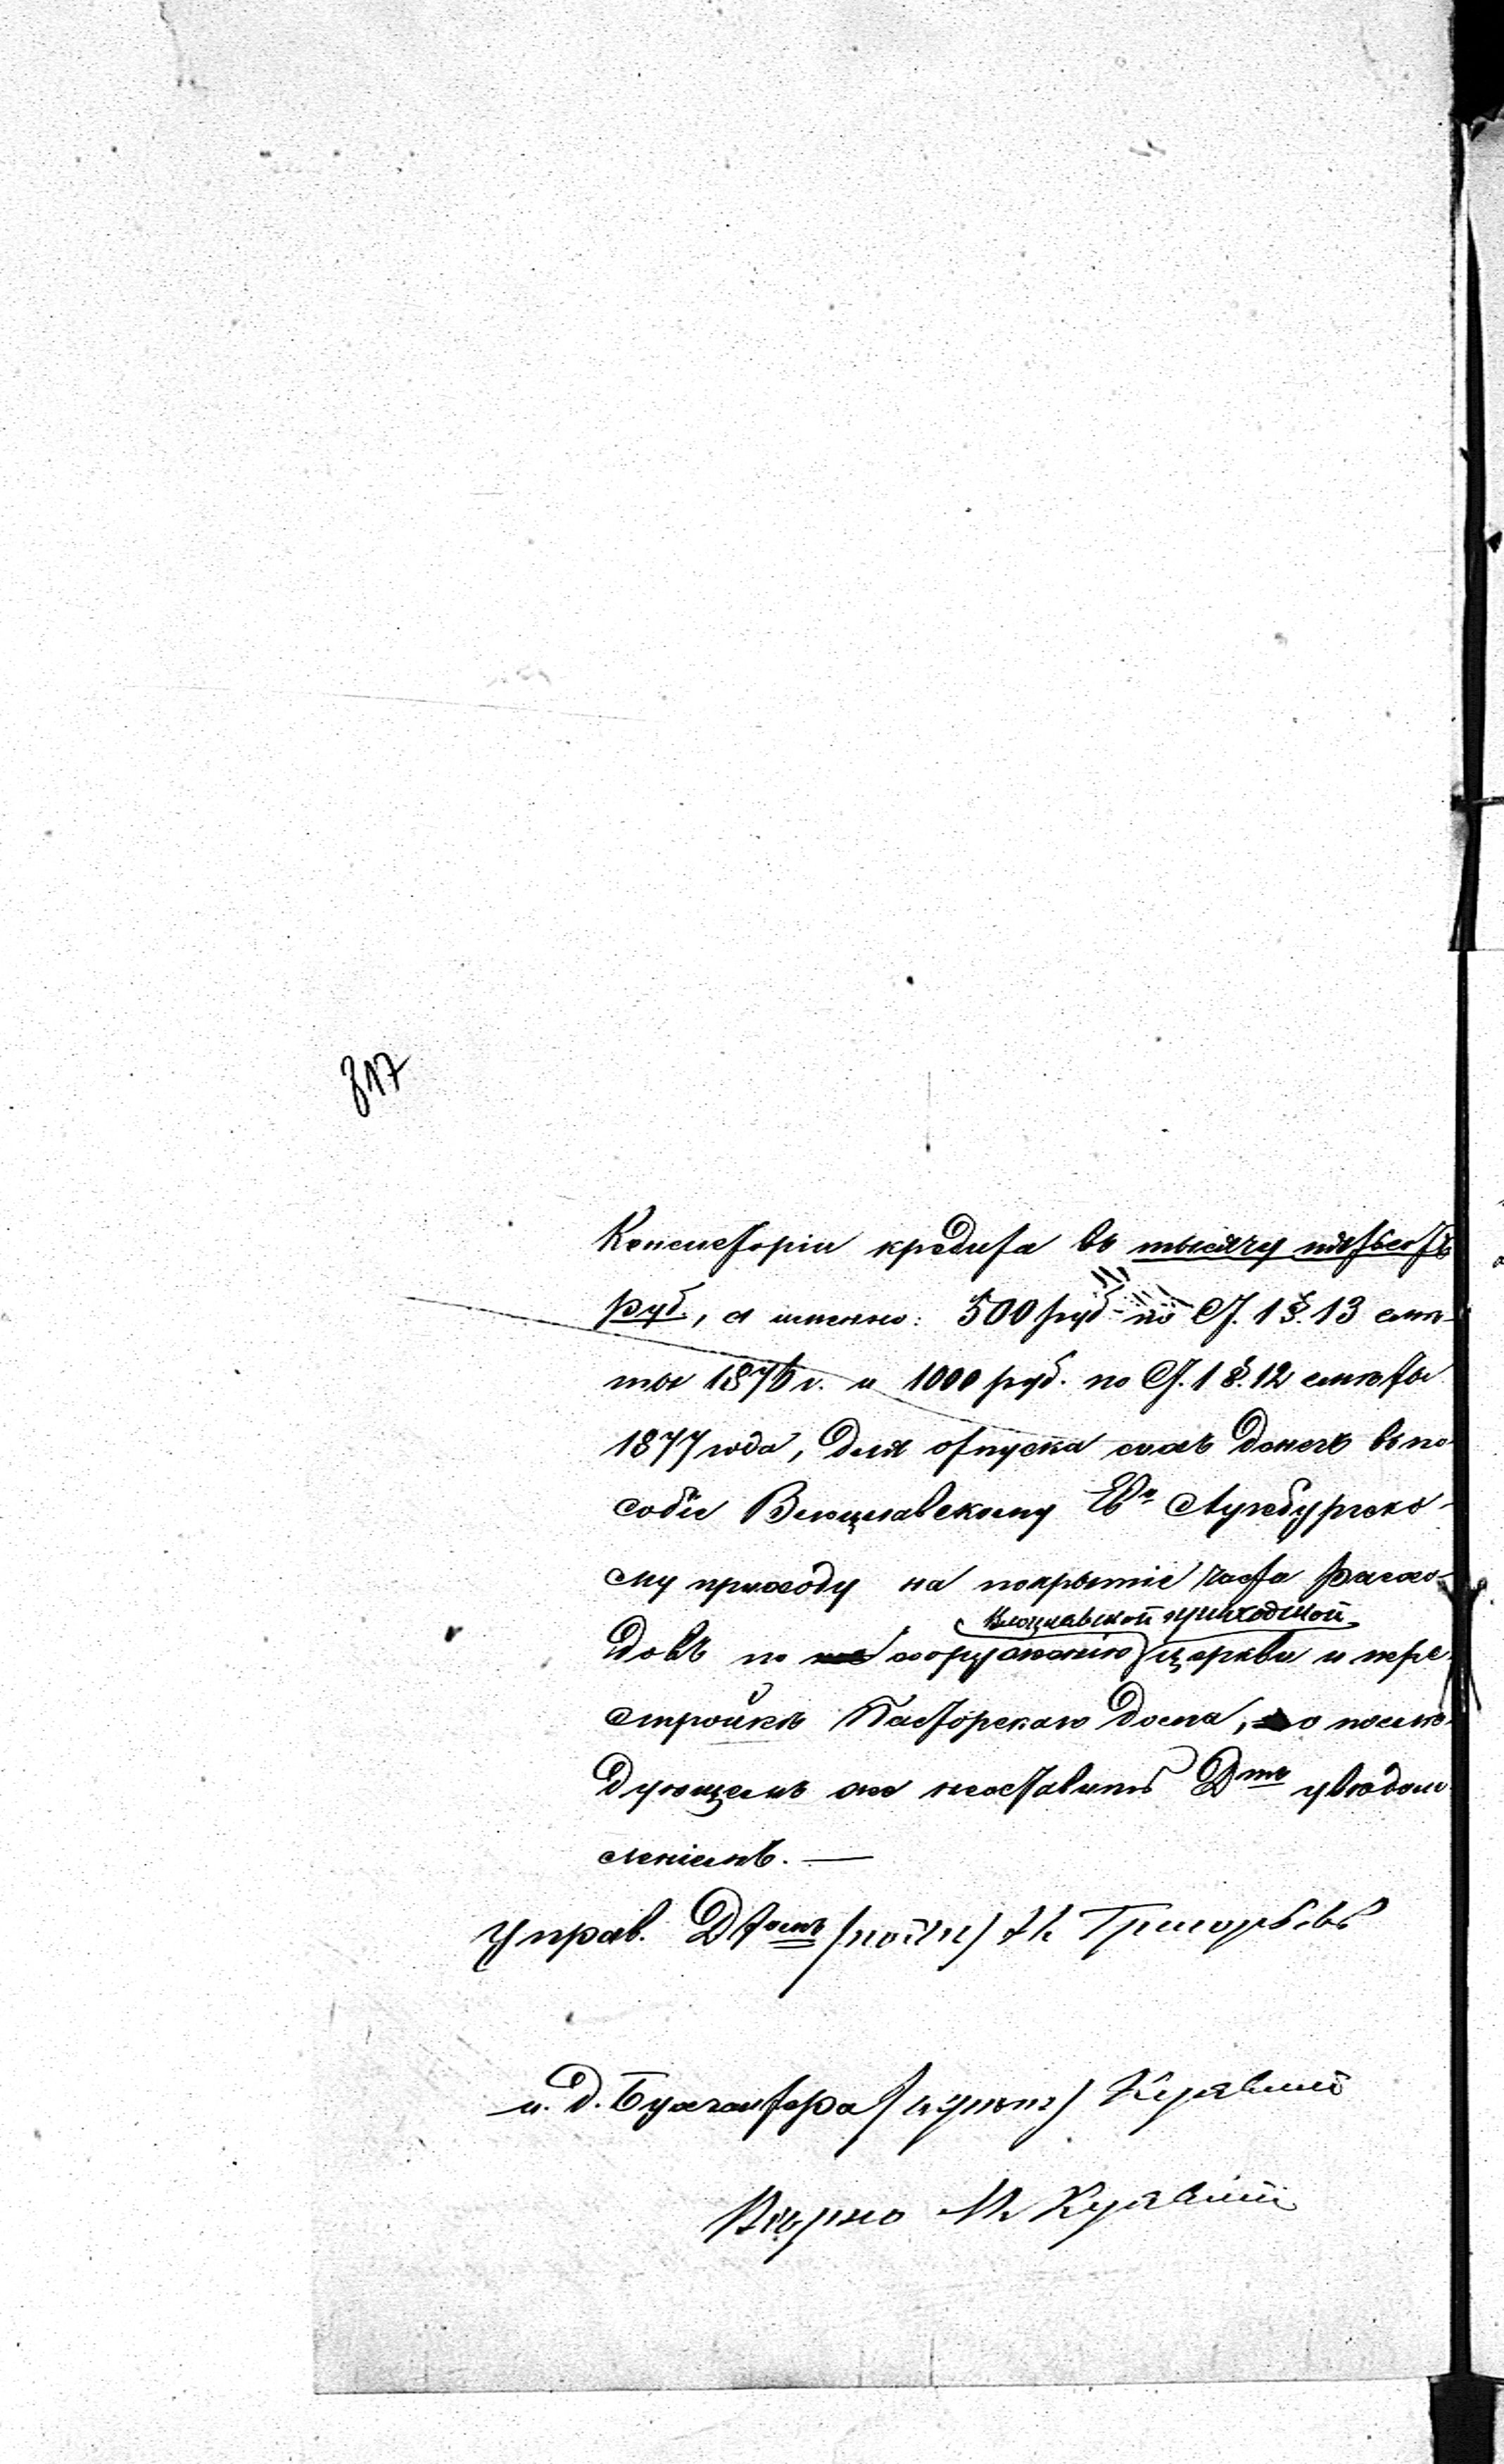 317
Консисторіи кредита въ тысячу пятьсотъ
руб., а именно: 500 руб. по Ст. 1 §. 13 смѣ-
ты 1876 г. и 1000 руб. по Ст. 1 §. 12 смѣты
1877 года, для отпуска сихъ денегъ въ по-
собіе Влоцлавскому Ев. Аугсбургско-
му приходу на покрытіе части расхо-
Влоцлавской приходской
довъ по сооруженію церкви и пере-
стройкѣ Пасторскаго дома, о послѣ-
дующемъ же неоставить Дтъ увѣдом-
леніемъ. —
Управ. Дтомъ (подп.) Григорьевъ
и. д. Бухгалтера (скрѣп.)
Вѣрно